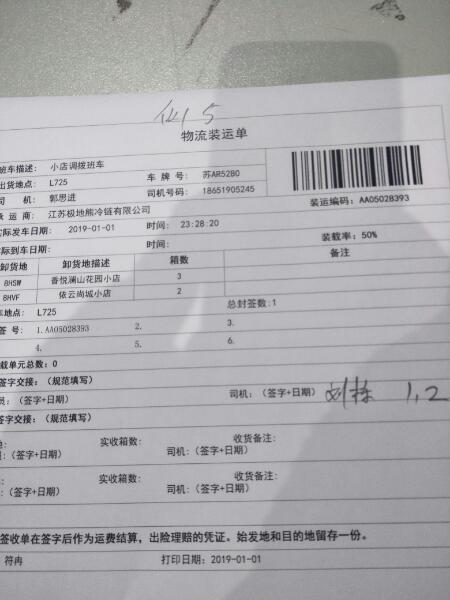 物流装运单
班车描述: 小店调拨班车
出货地点: L725 车 牌 号: 苏AR5280
司 机: 郭思进 司机号码: 18651905245
承 运 商: 江苏极地熊冷链有限公司 装运编码: AA05028393
实际发车日期: 2019-01-01 时间: 23:28:20
实际到车日期: 时间: 装载率: 50%
卸货地 卸货地描述 箱数 备注
8HSW 香悦澜山花园小店 3
8HVF 依云尚城小店 2
车地点: L725 总封签数:1
签 号: 1.AA05028393 2. 3.
4. 5. 6.
载单元总数: 0
签字交接: (规范填写)
员: (签字+日期) 司机: (签字+日期) 1,2
签字交接: (规范填写)
: 实收箱数: 收货备注:
: (签字+日期) 司机: (签字+日期)
: 实收箱数: 收货备注:
: (签字+日期) 司机: (签字+日期)
签收单在签字后作为运费结算, 出险理赔的凭证。始发地和目的地留存一份。
符冉 打印日期: 2019-01-01